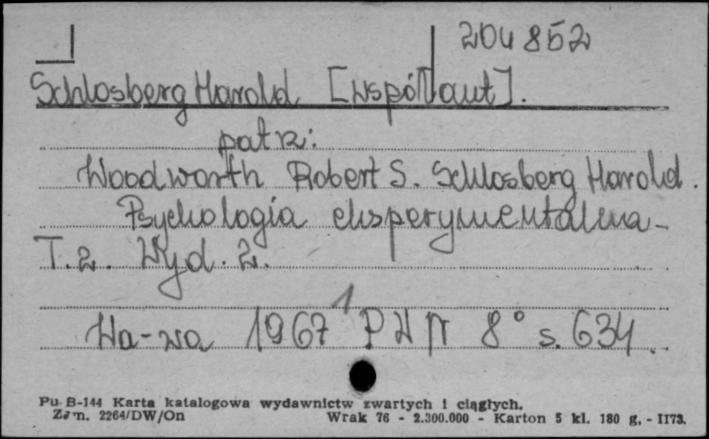 204852
Schlosberg Harold [współaut].
patrz:
Woodworth Robert S. Schlosberg Harold.
Psychologia eksperymentalna
T. 2. Wyd. 2.
Wa-wa 1967 PWN 8° s. 634.
Pu-B-144 Karta katalogowa wydawnictw zwartych i ciągłych.
Zam. 2264/DW/On Wrak 76 - 2.300.000 - Karton 5 kl. 180 g. - II73.